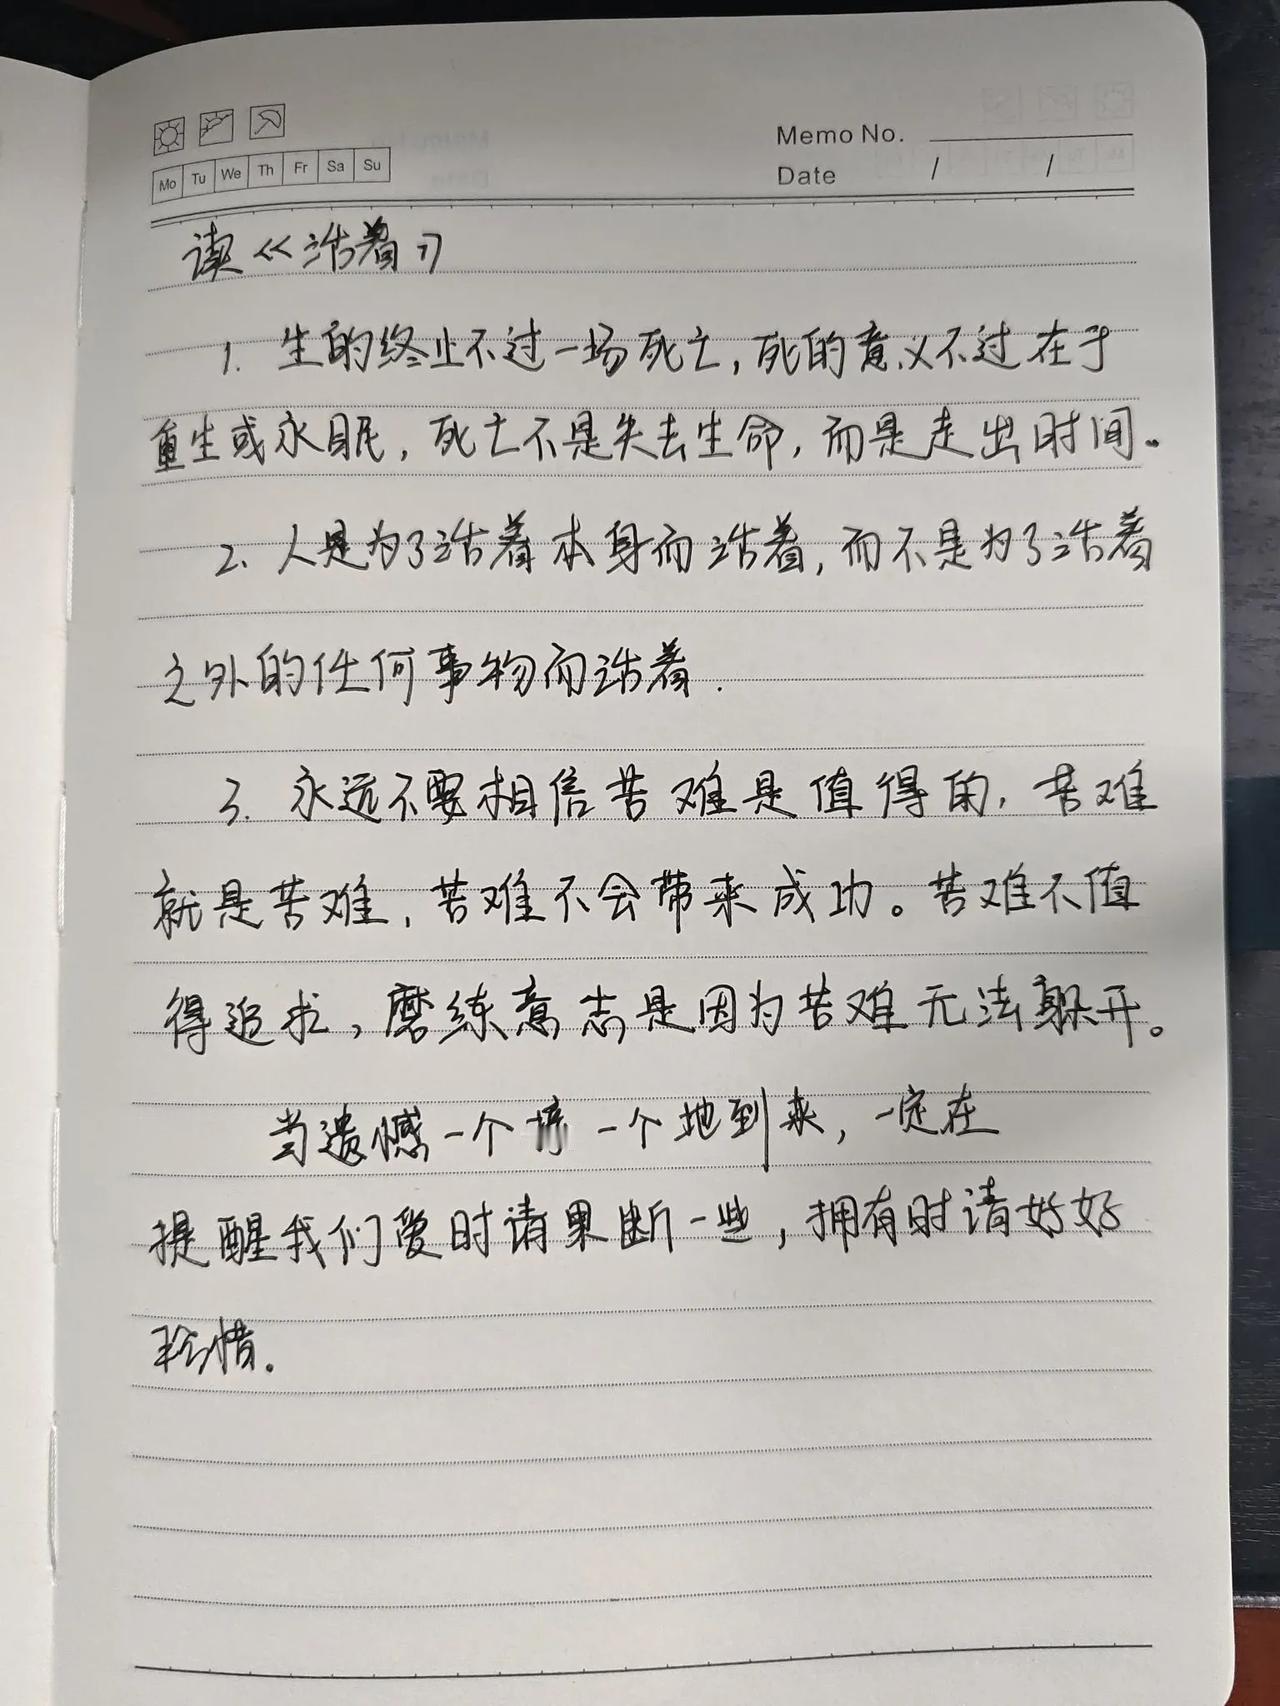 Memo No.
Mo Tu We Th Fr Sa Su
Date / /
读《活着》
1. 生的终止不过一场死亡，死的意义不过在于
重生或永眠，死亡不是失去生命，而是走出时间。
2. 人是为了活着本身而活着，而不是为了活着
之外的任何事物而活着.
3. 永远不要相信苦难是值得的，苦难
就是苦难，苦难不会带来成功。苦难不值
得追求，磨练意志是因为苦难无法躲开。
当遗憾一个 一个地到来，一定在
提醒我们爱时请果断一些，拥有时请好好
珍惜.